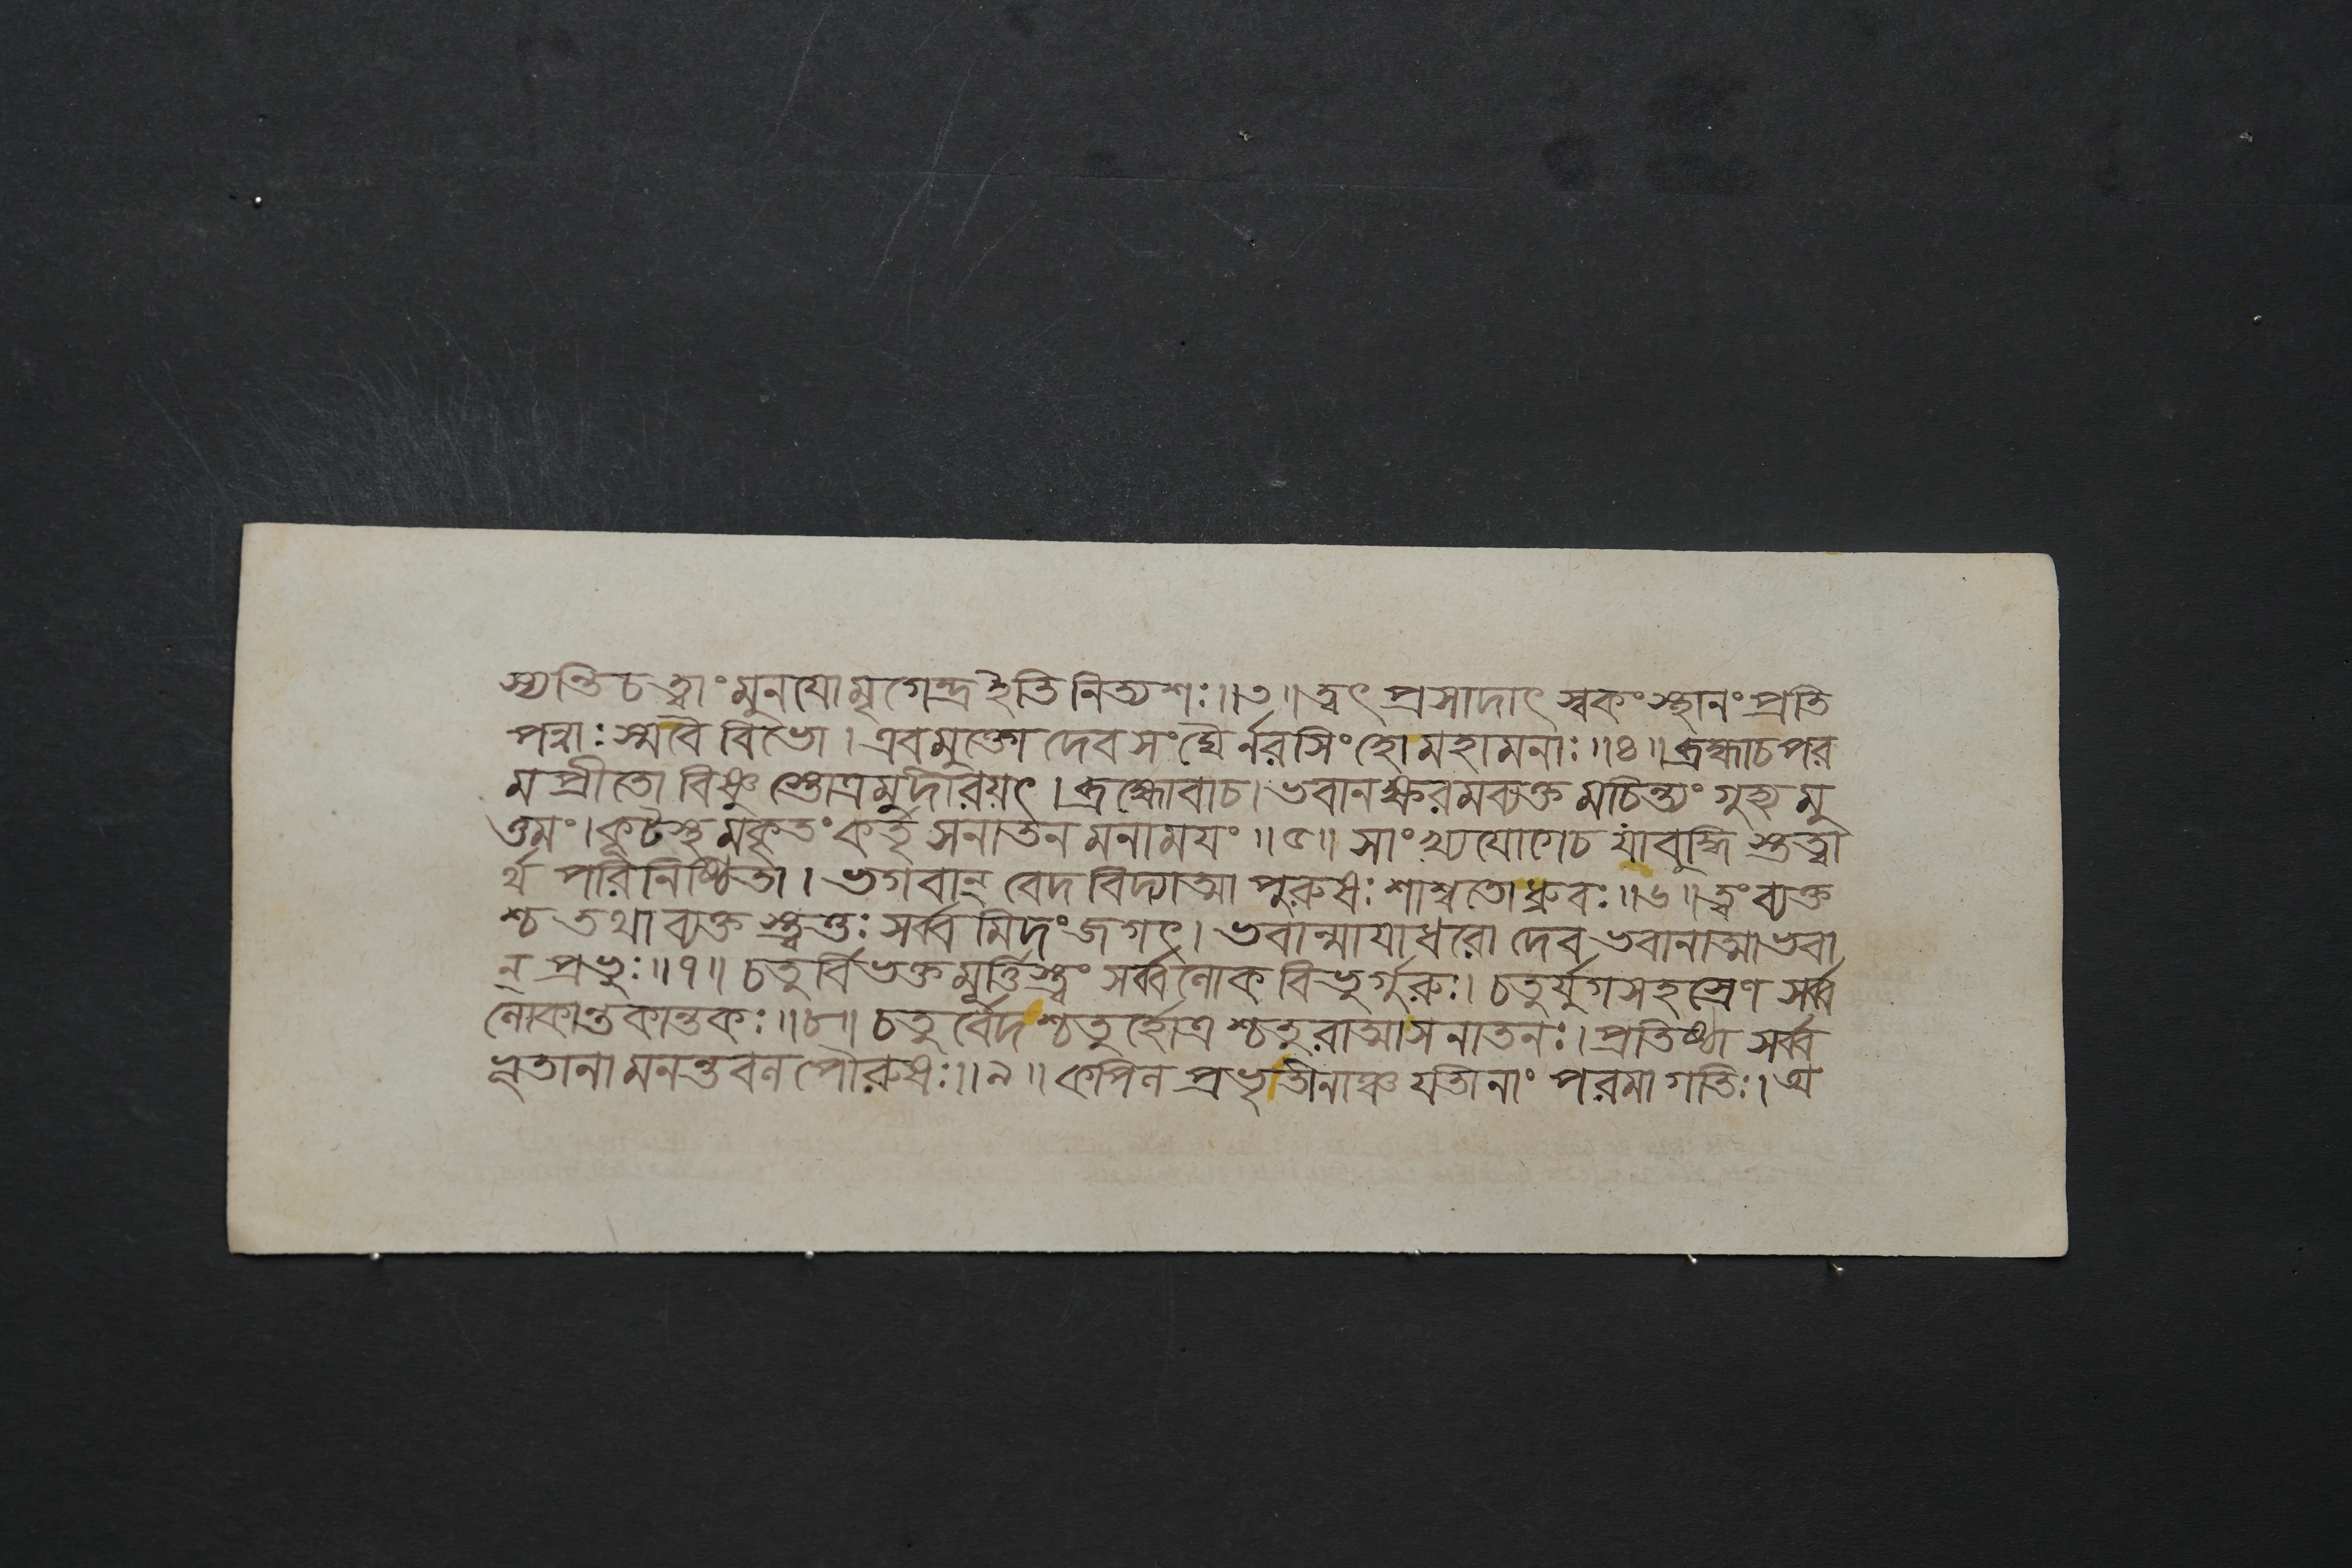 স্যন্তি চ ত্বাং মুনযো মৃগেন্দ্র ইতি নিত্যশঃ॥৩॥ ত্বৎ প্রসাদাৎ স্বকং স্থানং প্রতি
পন্নাঃ স্ম বৈ বিভো। এবমুক্তো দেবসংঘৈর্নরসিংহো মহামনাঃ॥৪॥ ব্রহ্মা চ পর
মপ্রীতো বিষ্ণু স্তোত্রমুদীরয়ৎ। ব্রহ্মোবাচ। ভবানক্ষরমব্যক্তমচিন্ত্যং গুহ্যমু
ত্তমং। কূটস্থমকৃতং কর্তৃ সনাতনমনাময়ং॥৫॥ সাংখ্যযোগে চ যা বুদ্ধি স্তত্ত্বা
র্থ পরিনিষ্ঠিতা। ভগবান্ বেদবিদ্যাত্মা পুরুষঃ শাশ্বতো ধ্রুবঃ॥৬॥ ত্বং ব্যক্ত
শ্চ তথাব্যক্ত স্ত্বত্তঃ সর্ব্বমিদং জগৎ। ভবান্মাযাধরো দেব ভবানাত্মা ভবা
ন্ প্রভুঃ॥৭॥ চতুর্বিভক্তমূর্ত্তিস্ত্বং সর্ব্বলোকবিভুর্গুরুঃ। চতুর্যুগসহস্রেণ সর্ব্ব
লোকান্তকান্তকঃ॥৮॥ চতুর্বেদশ্চতুর্হোত্রশ্চতুরাত্মা সনাতনঃ। প্রতিষ্ঠা সর্ব্ব
ভূতানামনন্তবলপৌরুষঃ॥৯॥ কপিলপ্রভৃতীনাঞ্চ যতীনাং পরমা গতিঃ। অ